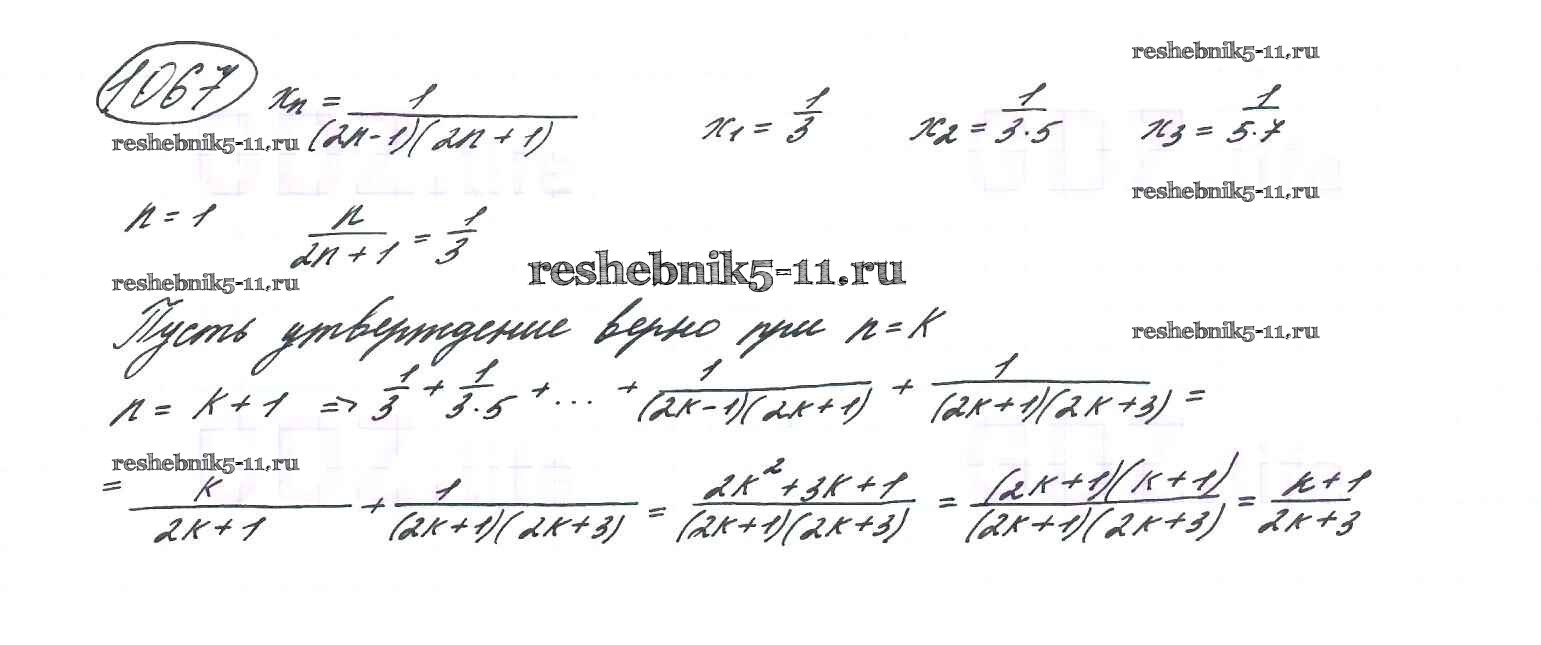 reshebnik5-11.ru
1067 xₙ = 1/((2n-1)(2n+1)) x₁ = 1/3 x₂ = 1/(3·5) x₃ = 1/(5·7)
reshebnik5-11.ru
reshebnik5-11.ru
n = 1 n/(2n+1) = 1/3
reshebnik5-11.ru
reshebnik5-11.ru
Пусть утверждение верно при n = k
reshebnik5-11.ru
n = k+1 => 1/3 + 1/(3·5) + ... + 1/((2k-1)(2k+1)) + 1/((2k+1)(2k+3)) =
reshebnik5-11.ru
= k/(2k+1) + 1/((2k+1)(2k+3)) = (2k²+3k+1)/((2k+1)(2k+3)) = ((2k+1)(k+1))/((2k+1)(2k+3)) = (k+1)/(2k+3)